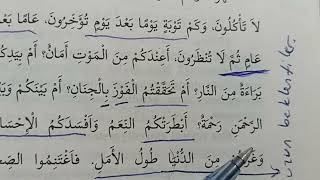 لاَ تَأْكُلُونَ، وَكَمْ تَوْبَةٍ يَوْمًا بَعْدَ يَوْمٍ تُؤَخِّرُونَ، عَامًا بَعْدَ
عَامٍ ثُمَّ لاَ تُنْظَرُونَ. أَعِنْدَكُمْ مِنَ الْمَوْتِ أَمَانٌ؟ أَمْ بِيَدِكُمْ
بَرَاءَةٌ مِنَ النَّارِ؟ أَمْ تَحَقَّقْتُمُ الْفَوْزَ بِالْجِنَانِ؟ أَمْ بَيْنَكُمْ وَبَيْنَ
الرَّحْمٰنِ رَحْمَةٌ؟ أَبْطَرَتْكُمُ النِّعَمُ وَأَفْسَدَكُمُ الْإِحْسَانُ
مِنَ الدُّنْيَا طُولُ الْأَمَلِ. فَاغْتَنِمُوا
beklentiler